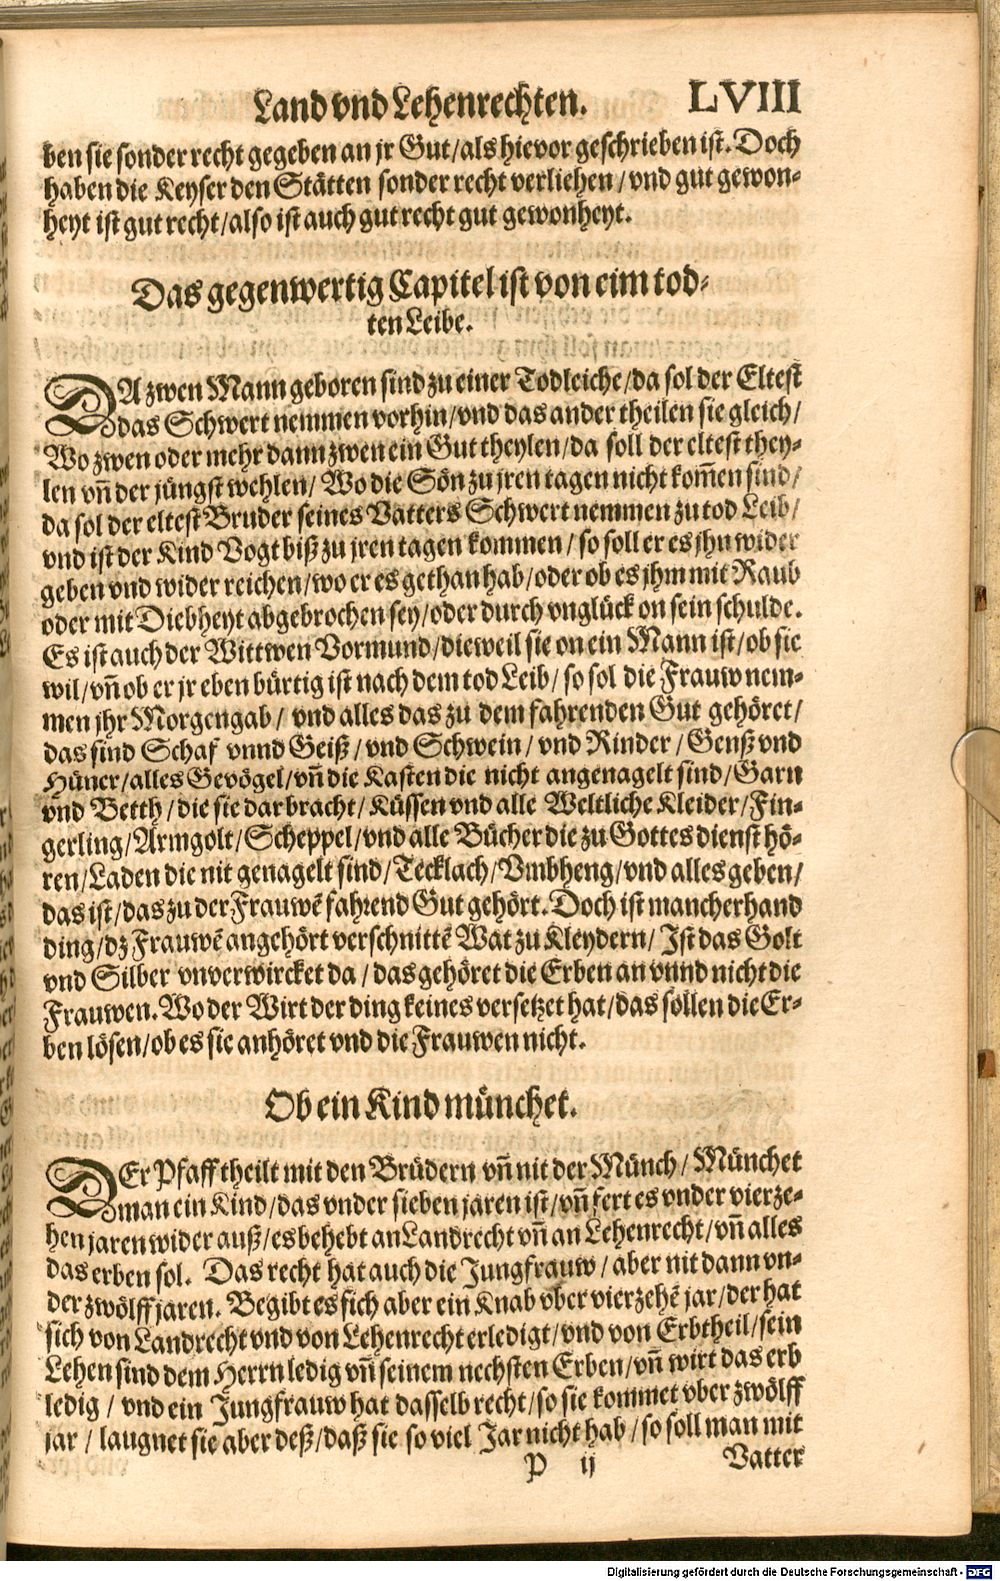 Land vnd Lehenrechten. LVIII
ben sie sonder recht gegeben an jr Gut/als hievor geschrieben ist. Doch
haben die Keyser den Stätten sonder recht verliehen/vnd gut gewon-
heyt ist gut recht/also ist auch gut recht gut gewonheyt.
Das gegenwertig Capitel ist von eim tod-
ten Leibe.
DA zwen Mann geboren sind zu einer Todleiche/da sol der Eltest
das Schwert nemmen vorhin/vnd das ander theilen sie gleich/
Wo zwen oder mehr dann zwen ein Gut theylen/da soll der eltest they-
len vñ der jüngst wehlen/Wo die Sön zu jren tagen nicht kom̃en sind/
da sol der eltest Bruder seines Vatters Schwert nemmen zu tod Leib/
vnd ist der Kind Vogt biß zu jren tagen kommen/so soll er es jhn wider
geben vnd wider reichen/wo er es gethan hab/oder ob es jhm mit Raub
oder mit Diebheyt abgebrochen sey/oder durch vnglück on sein schulde.
Es ist auch der Wittwen Vormund/dieweil sie on ein Mann ist/ob sie
wil/vñ ob er jr eben bürtig ist nach dem tod Leib/so sol die Frauw nem-
men jhr Morgengab/vnd alles das zu dem fahrenden Gut gehöret/
das sind Schaf vnnd Geiß/vnd Schwein/vnd Rinder/Genß vnd
Hüner/alles Gevögel/vñ die Kasten die nicht angenagelt sind/Garn
vnd Betth/die sie dar bracht/Küssen vnd alle Weltliche Kleider/Fin-
gerling/Armgolt/Scheppel/vnd alle Bücher die zu Gottes dienst hö-
ren/Laden die nit genagelt sind/Tecklach/Vmbheng/vnd alles geben/
das ist/das zu der Frauwē fahrend Gut gehört. Doch ist mancherhand
ding/dz Frauwē angehört verschnittē Wat zu Kleydern/Ist das Golt
vnd Silber vnverwircket da/das gehöret die Erben an vnnd nicht die
Frauwen. Wo der Wirt der ding keines versetzet hat/das sollen die Er-
ben lösen/ob es sie anhöret vnd die Frauwen nicht.
Ob ein Kind münchet.
DEr Pfaff theilt mit den Brüdern vñ nit der Münch/Münchet
man ein Kind/das vnder sieben jaren ist/vñ fert es vnder vierze-
hen jaren wider auß/es behebt an Landrecht vñ an Lehenrecht/vñ alles
das erben sol. Das recht hat auch die Jungfrauw/aber nit dann vn-
der zwölff jaren. Begibt es sich aber ein Knab vber vierzehē jar/der hat
sich von Landrecht vnd von Lehenrecht erledigt/vnd von Erbtheil/sein
Lehen sind dem Herrn ledig vñ seinem nechsten Erben/vñ wirt das erb
ledig/vnd ein Jungfrauw hat dasselb recht/so sie kommet vber zwölff
jar/laugnet sie aber deß/daß sie so viel Jar nicht hab/so soll man mit
P ij Vatter
Digitalisierung gefördert durch die Deutsche Forschungsgemeinschaft - DFG